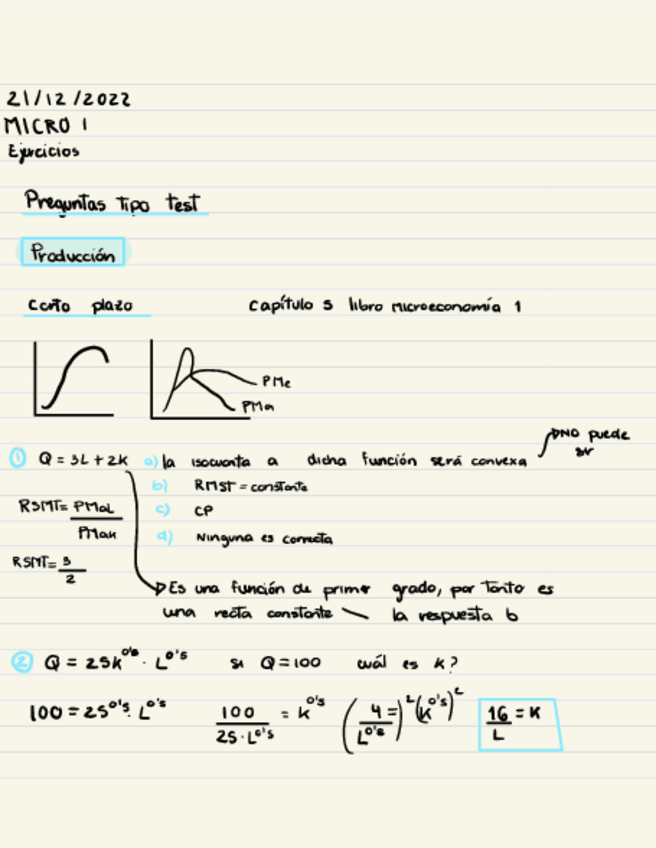 21/12/2022
MICRO 1
Ejercicios
Preguntas tipo test
Producción
Corto plazo Capítulo 5 libro microeconomía 1
PMe
PMa
① Q = 3L + 2K a) la isocuanta a dicha función será convexa NO puede ser
b) RMST = constante
RSMT = PMaL / PMaK c) CP
d) Ninguna es correcta
RSMT = 3/2
Es una función de primer grado, por tanto es
una recta constante — la respuesta b
② Q = 25K^0's · L^0's si Q = 100 cuál es K?
100 = 25^0's · L^0's 100 / 25·L^0's = K^0's (4 / L^0's =)² (K^0's)² 16/L = K